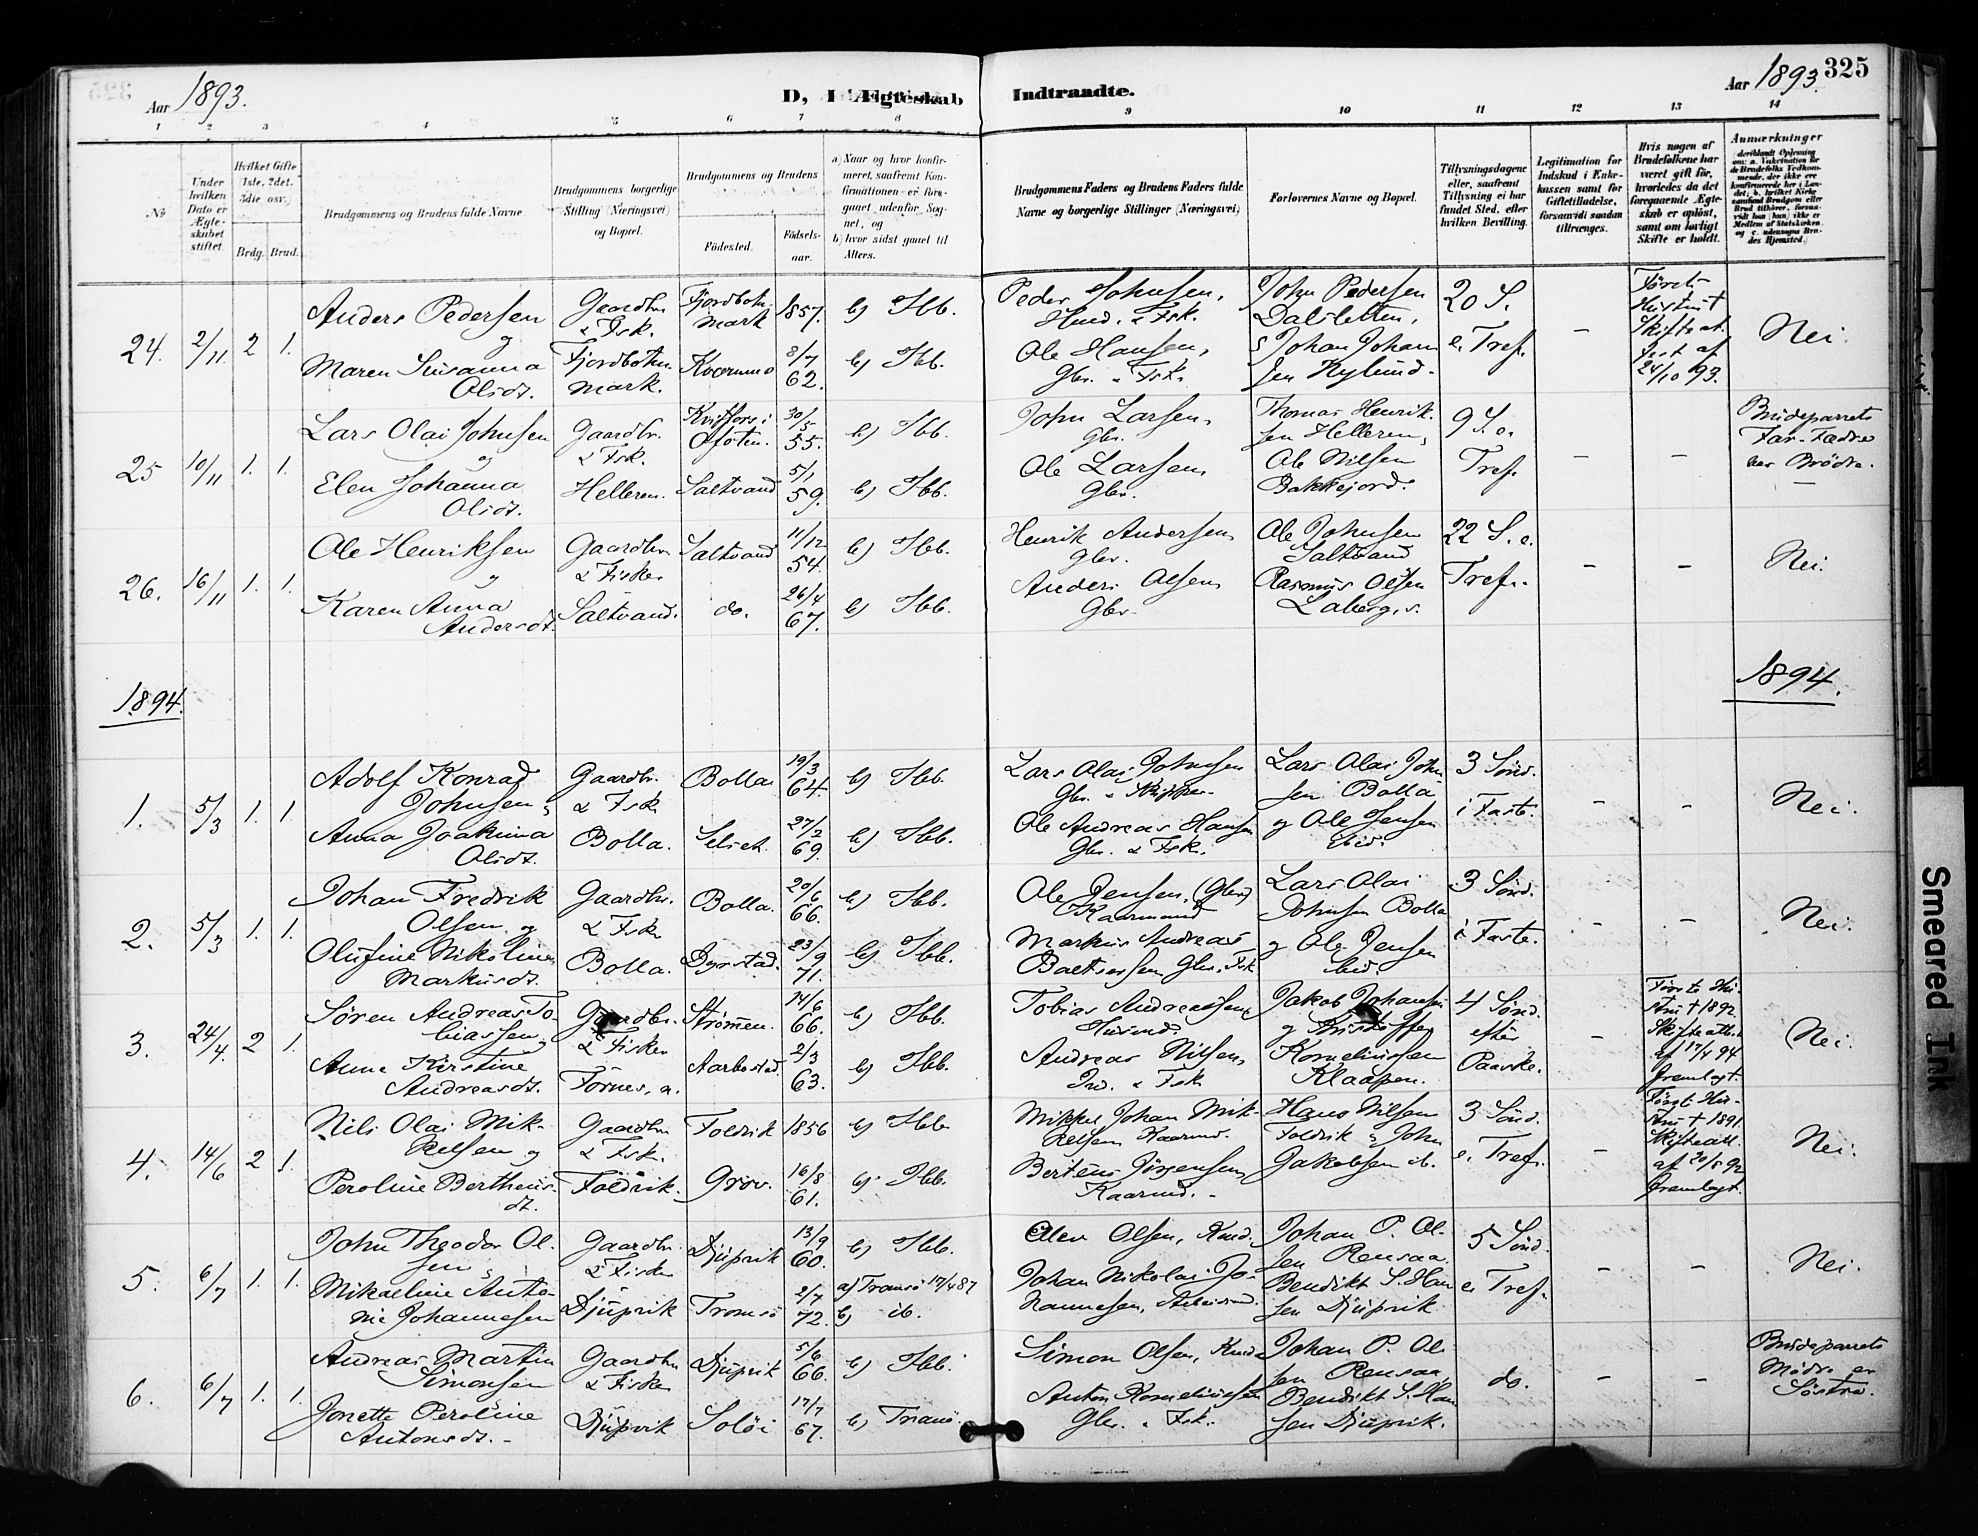 Aar 1893.
D, I Ægteskab Indtraadte.
Aar 1893. 325
1 2 3 4 5 6 7 8 9 10 11 12 13 14
No
Under hvilken Dato er Ægteskabet stiftet.
Hvilket Gifte 1ste, 2det, 3die osv.
Brdg. Brud.
Brudgommens og Brudens fulde Navne
Brudgommens borgerlige Stilling (Næringsvei) og Bopæl.
Brudgommens og Brudens
Fødested. Fødsels-aar.
a) Naar og hvor konfirmeret, saafremt Konfirmationen er foregaaet udenfor Sognet, og
b) hvor sidst gaaet til Alters.
Brudgommens Faders og Brudens Faders fulde Navne og borgerlige Stillinger (Næringsvei)
Forlovernes Navne og Bopæl.
Tillysningsdagene eller, saafremt Tillysning ei har fundet Sted, efter hvilken Bevilling.
Legitimation for Indskud i Enkekassen samt for Giftetilladelse, forsaavidt saadan tiltrænges.
Hvis nogen af Brudefolkene har været gift før, hvorledes da det foregaaende Ægteskab er opløst, samt om lovligt Skifte er holdt.
Anmærkninger
24. 2/11 2 1.
Anders Pedersen
og
Maren Susanna
Olsdt.
Gaardbr.
& Fsk.
Fjordbotn.
mark.
Fjordbotn.
mark 1857. b) Ibb.
Kvernmo 8/7 62. b) Ibb.
Peder Johnsen,
Husd. & Fsk.
Ole Hansen,
Gbr. & Fsk.
John Pedersen
Dalsletten,
& Johan Johan
sen Nylund.
20 S.
e. Tref.
–
24/10 93.
Nei.
25 10/11 1. 1.
Lars Olai Johnsen
og
Elen Johanna
Olsdt.
Gaardbr.
& Fsk.
Helleren.
Kvitfors i
Ofoten. 30/5 55. b) Ibb.
Saltvand 5/1 59. b) Ibb.
John Larsen,
Gbr.
Ole Larsen,
Gbr.
Thomas Henrik.
sen Helleren,
Ole Nilsen
Bakkejord.
9 S. e.
Tref.
– –
Brudeparrets
Far-Fædre
er Brödre.
26. 16/11 1. 1.
Ole Henriksen
og
Karen Anna
Andersdt.
Gaardbr.
& Fisker
Saltvand.
Saltvand 11/12 54. b) Ibb.
do. 26/4 67. b) Ibb.
Henrik Andersen,
Gbr.
Anders Olsen,
Gbr.
Ole Johnsen
Saltvand
Rasmus Olsen
Laberg, s.
22 S. e.
Tref.
– –
Nei.
1894. 1894.
1. 5/3 1. 1.
Adolf Konrad
Johnsen &
Anna Joakima
Olsdt.
Gaardbr.
& Fsk
Bolla.
Bolla 19/3 64. b) Ibb.
Selset 27/2 69. b) Ibb.
Lars Olai Johnsen
Gbr. & Skipper.
Ole Andreas Hansen
Gbr. & Fsk.
Lars Olai John
sen Bolla
og Ole Jensen
ibid.
3 Sönd.
i Faste.
– –
Nei.
2. 5/3 1. 1.
Johan Fredrik
Olsen og
Olufine Nikoline
Markusdt.
Gaardbr.
& Fsk
Bolla.
Bolla. 20/6 66. b) Ibb.
Dyrstad. 23/9 71. b) Ibb.
Ole Jensen, (Gbr.)
Kaarmand
Markus Andreas
Baltsersen Gbr. Fsk
Lars Olai
Johnsen Bolla
og Ole Jensen
ibid.
3 Sönd.
i Faste.
– –
Nei.
3. 24/4. 2 1.
Søren Andreas To-
biassen og
Anne Kirstine
Andreasdt.
Gaardbr.
& Fisker
Törnes, a.
Strømen. 14/6 66. b) Ibb.
Aarbostad. 2/3 63. b) Ibb.
Tobias Andreassen,
Husmd.
Andreas Nilsen,
Ind. & Fsk
Jakob Johansen
og Kristoffer
Korneliussen
Klaapen.
4 Sönd.
efter
Paaske.
–
Første Hu-
stru † 1892.
Skifteatt.
af 17/4 94
fremlagt.
Nei.
4. 14/6 2 1.
Nils Olai Mik-
kelsen og
Peroline Bertheus-
dt.
Gaardbr
& Fsk.
Foldvik.
Foldvik 1856 b) Ibb.
Grov. 16/8 61. b) Ibb.
Mikkel Johan Mik-
kelsen Kaarmd.
Berteus Jörgensen,
Kaarmd.
Hans Nilsen
Foldvik & John
Jakobsen ib.
3 Sönd.
e. Tref.
–
Først Hu-
stru † 1891.
Skifteatt.
af 20/5 92
fremlagt.
Nei.
5. 6/7 1. 1.
John Theodor Ol-
sen &
Mikaeline Anto-
nie Johannesen
Gaardbr.
& Fisker
Djüpvik
Djüpvik 13/9 60. b) Ibb.
Tromsö 2/7 72. a) Tromsö 17/4 87
b) ib.
Olsen,
Johan Nikolai Jo-
hannesen, Arbeidsmd.
Johan P. Ol-
sen Rensaa
Bendikt S. Han
sen Djüpvik.
5 Sönd.
e. Tref.
– –
Nei.
6. 6/7 1. 1.
Andreas Martin
Simonsen
Jonette Peroline
Antonsdt.
Gaardbr
& Fisker
Djüpvik
Djüpvik 5/6 66. b) Ibb.
Solöi 17/7 67. b) Tranö.
Simon Olsen,
Anton Korneliussen
Gbr. & Fsk.
Johan P. Ol-
sen Rensaa,
Bendikt S. Han
sen Djüpvik.
do.
– –
Brudeparrets
Mödre er
Söstre.
Smeared Ink